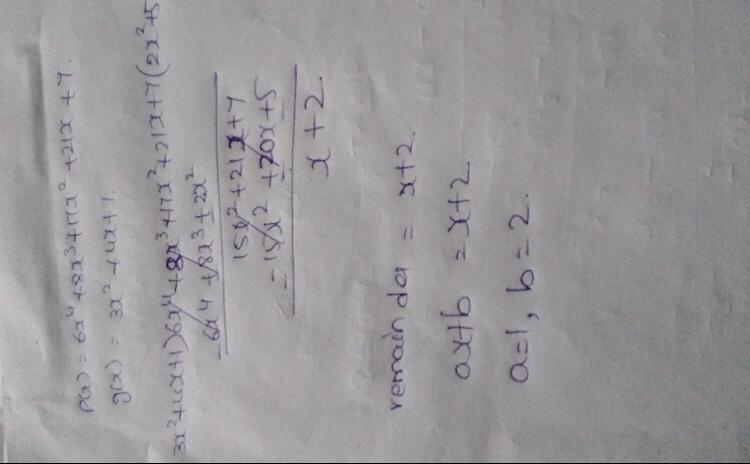 p(x) = 6x⁴+8x³+17x²+21x+7.
g(x) = 3x²+4x+1.
3x²+4x+1)6x⁴+8x³+17x²+21x+7(2x²+5
-6x⁴+8x³+2x²
15x²+21x+7
-15x²+20x+5
x+2
remainder = x+2
ax+b = x+2
a=1, b=2.